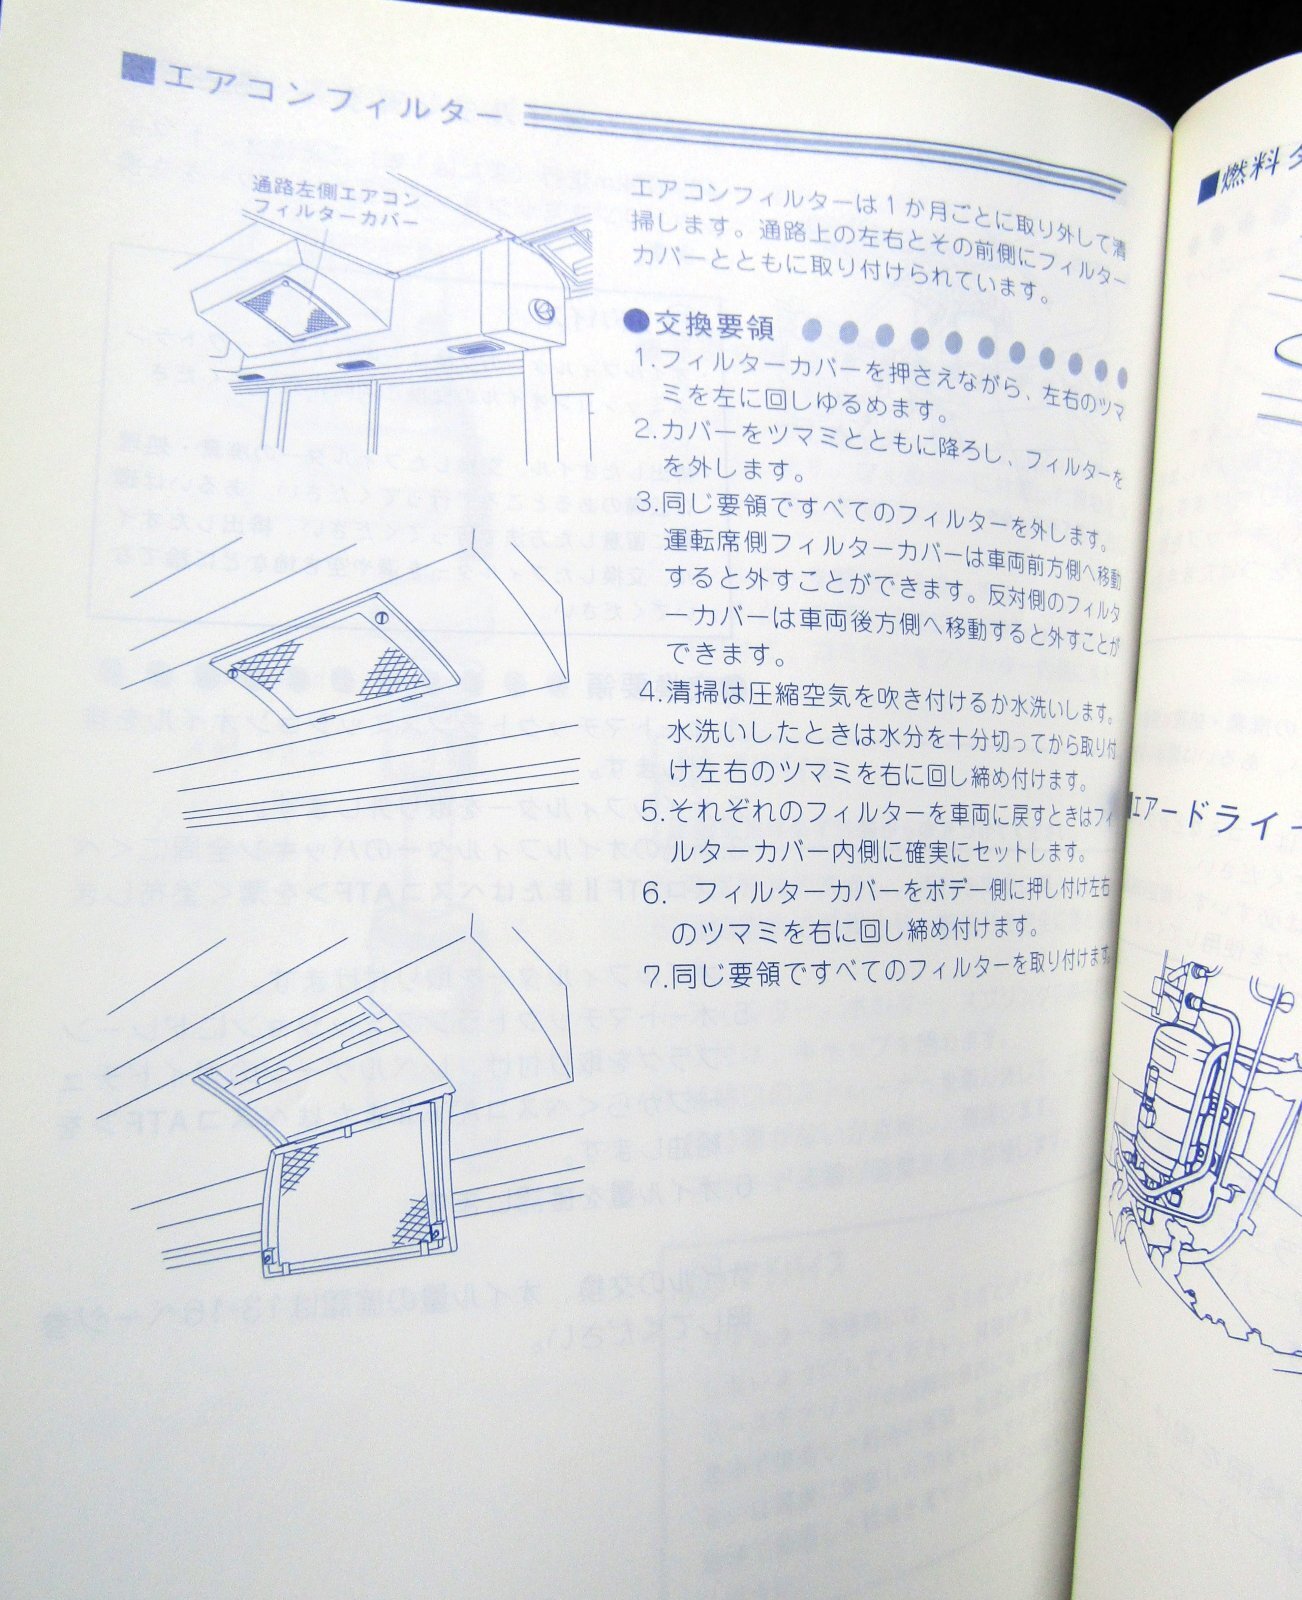 ■エアコンフィルター
通路左側エアコン
フィルターカバー
エアコンフィルターは1か月ごとに取り外して清
掃します。通路上の左右とその前側にフィルター
カバーとともに取り付けられています。
●交換要領
1.フィルターカバーを押さえながら、左右のツマ
ミを左に回しゆるめます。
2.カバーをツマミとともに降ろし、フィルターを
を外します。
3.同じ要領ですべてのフィルターを外します。
運転席側フィルターカバーは車両前方側へ移動
すると外すことができます。反対側のフィルタ
ーカバーは車両後方側へ移動すると外すことが
できます。
4.清掃は圧縮空気を吹き付けるか水洗いします。
水洗いしたときは水分を十分切ってから取り付
け左右のツマミを右に回し締め付けます。
5.それぞれのフィルターを車両に戻すときはフィ
ルターカバー内側に確実にセットします。
6. フィルターカバーをボデー側に押し付け左右
のツマミを右に回し締め付けます。
7.同じ要領ですべてのフィルターを取り付けます。
■燃料タ
■エアードライ